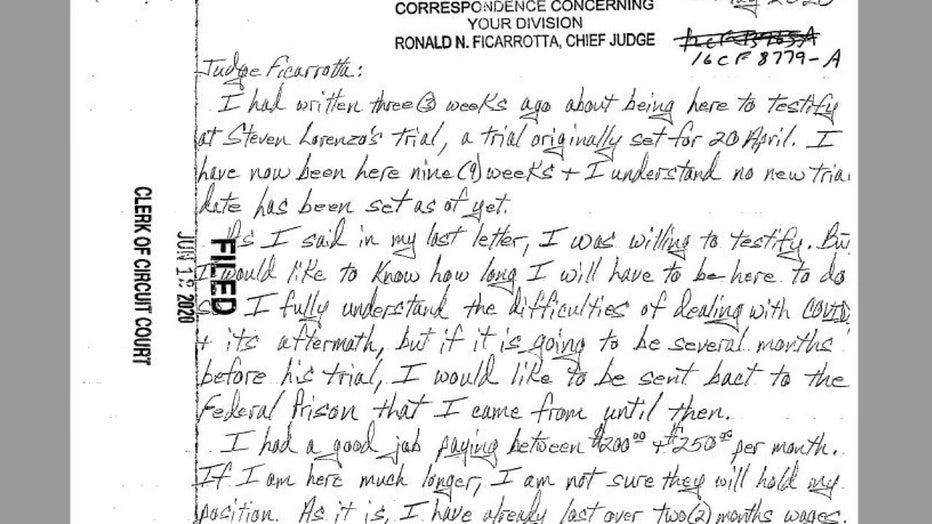 CORRESPONDENCE CONCERNING
YOUR DIVISION
RONALD N. FICARROTTA, CHIEF JUDGE
2020
16CF8779-A
Judge Ficarrotta:
I had written three (3) weeks ago about being here to testify
at Steven Lorenzo's trial, a trial originally set for 20 April. I
have now been here nine (9) weeks + I understand no new tria
date has been set as of yet.
As I said in my last letter, I was willing to testify. Bu
I would like to know how long I will have to be here to do
I fully understand the difficulties of dealing with COVID
+ its aftermath, but if it is going to be several months
before his trial, I would like to be sent bact to the
Federal Prison that I came from until then.
I had a good job paying between $200⁰⁰ + $250⁰⁰ per month.
If I am here much longer, I am not sure they will hold my
position. As it is, I have already lost over two (2) months wages.
FILED
JUN 2020
CLERK OF CIRCUIT COURT